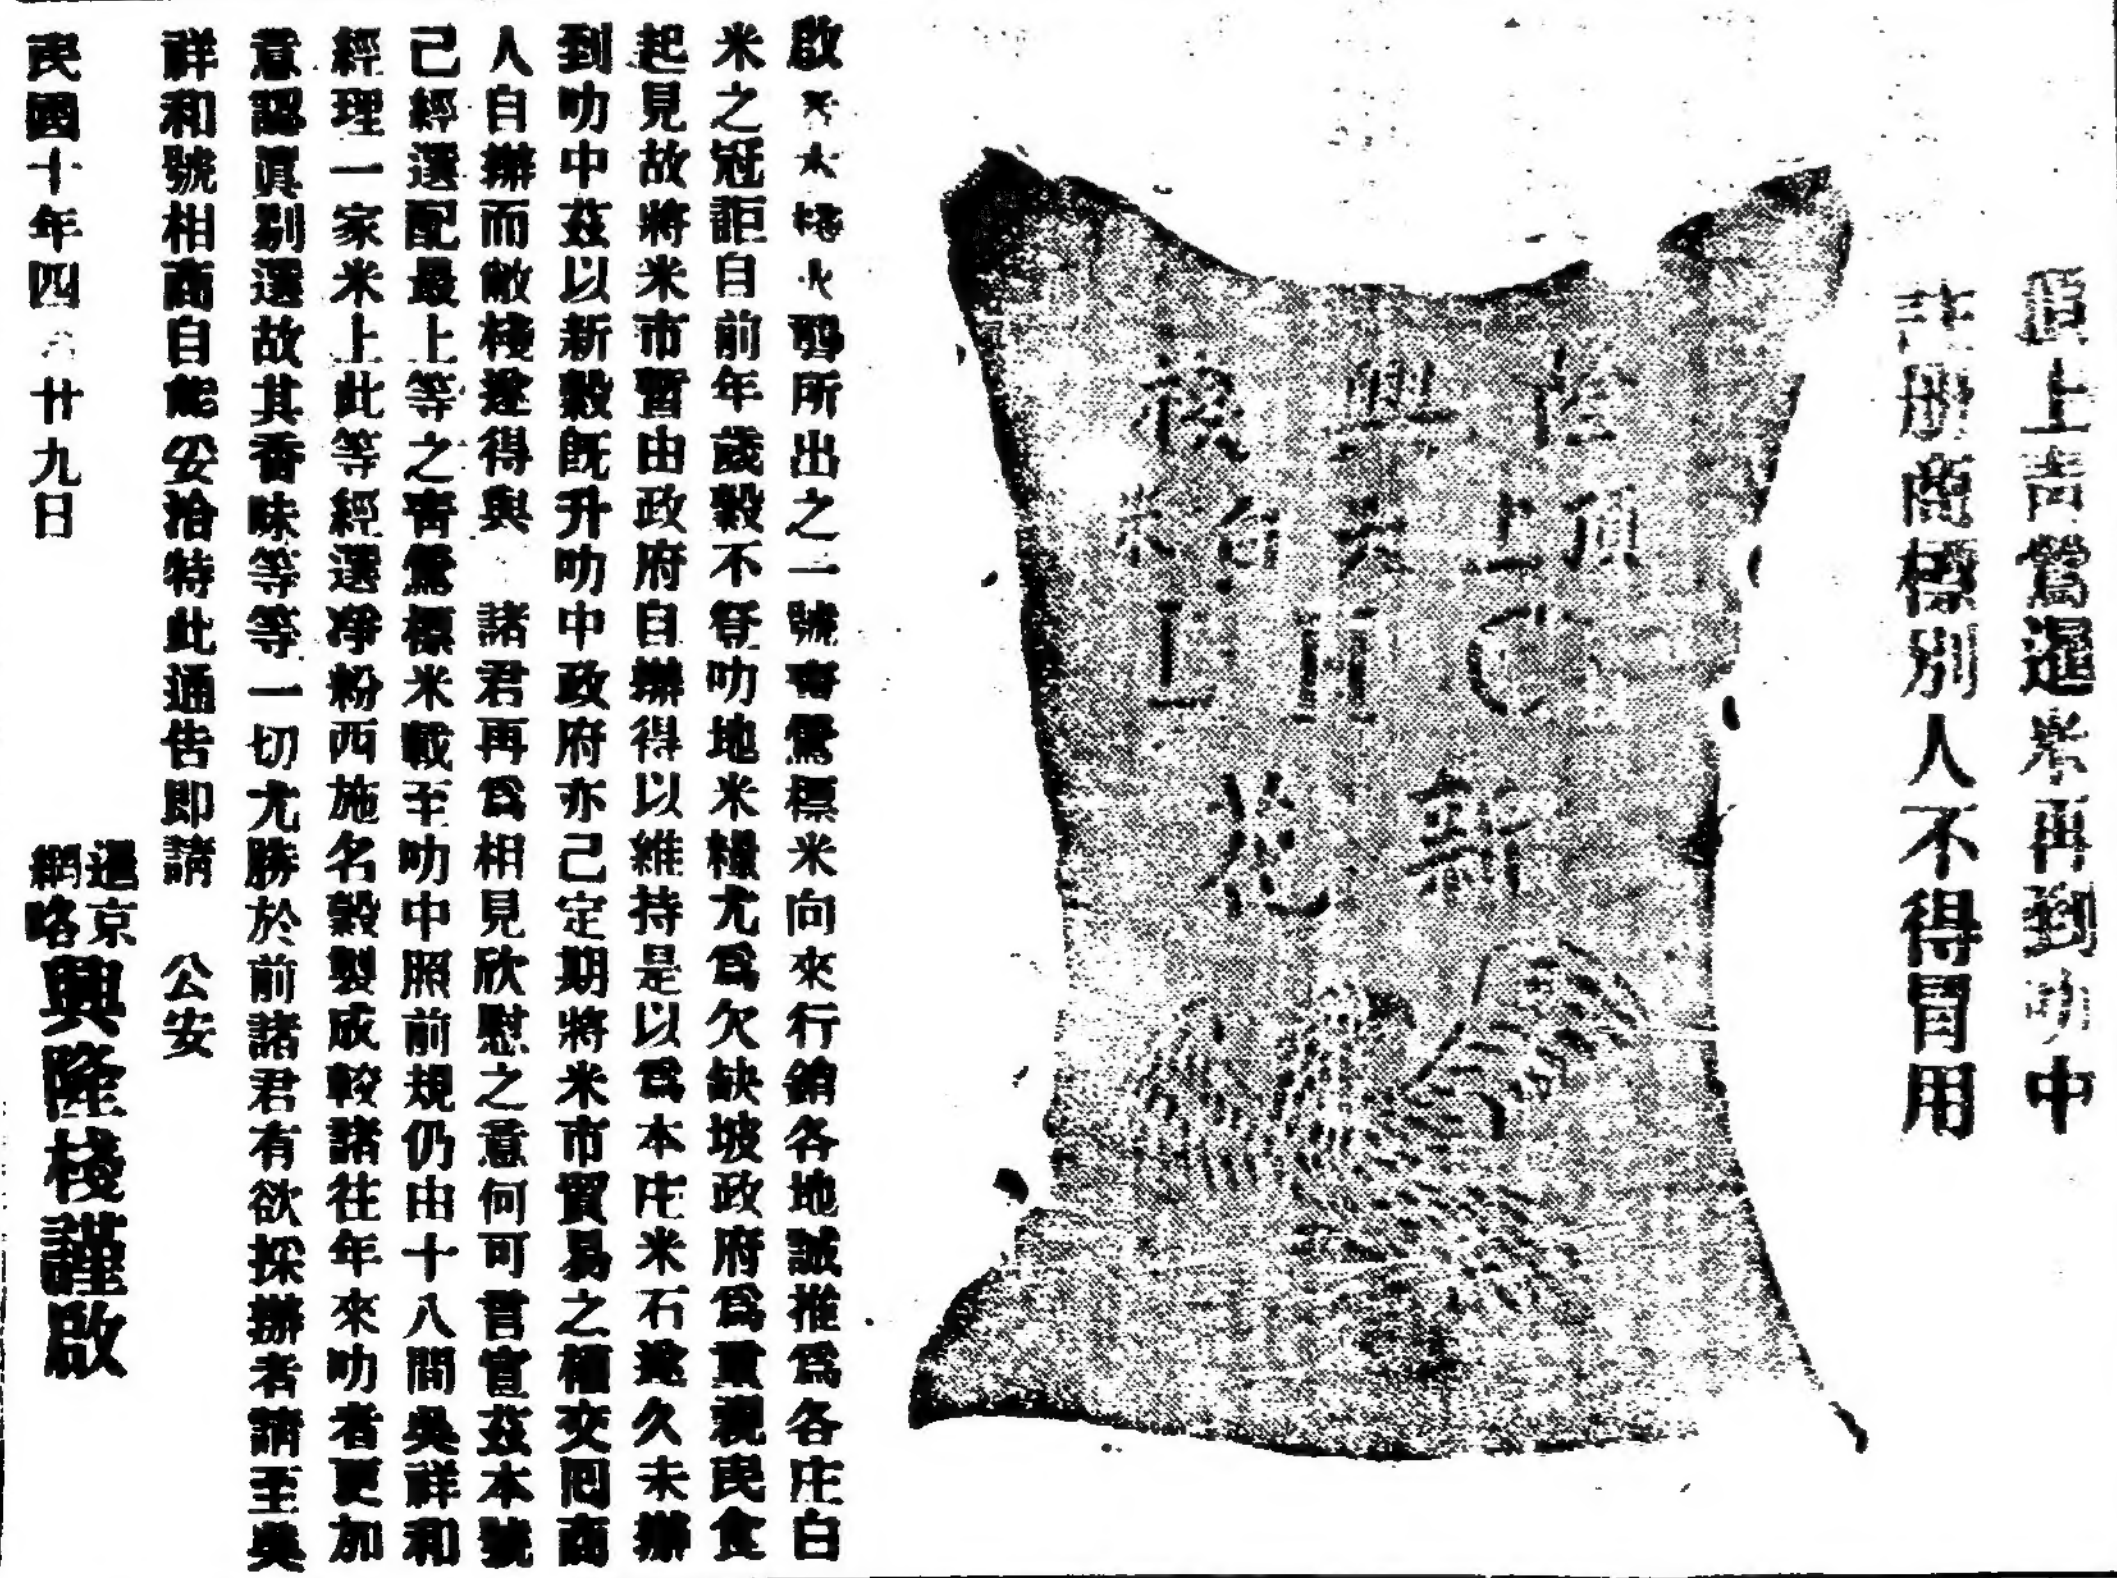 頂上青鶯暹米再到叻中
註册商標別人不得冒用
隆興棧
頂上天白米
C H L
新花
啟 所出之一號青鶯標米向來行銷各地誠推爲各庄白
米之冠詎自前年歲穀不登叻地米糧尤爲欠缺坡政府爲重視民食
起見故將米市暫由政府自辦得以維持是以爲本庄米石遂久未辦
到叻中茲以新穀既升叻中政府亦己定期將米市貿易之權交囘商
人自辦而敝棧遂得與 諸君再爲相見欣慰之意何可言宣茲本號
己經選配最上等之青鶯標米載至叻中照前規仍由十八間吳祥和
經理一家米上此等經選淨粉西施名穀製成較諸往年來叻者更加
意認眞剔選故其香味等等一切尤勝於前諸君有欲採辦者請至吳
祥和號相商自能妥洽特此通告即請 公安
民國十年四月廿九日
暹京
網咯
興隆棧謹啟